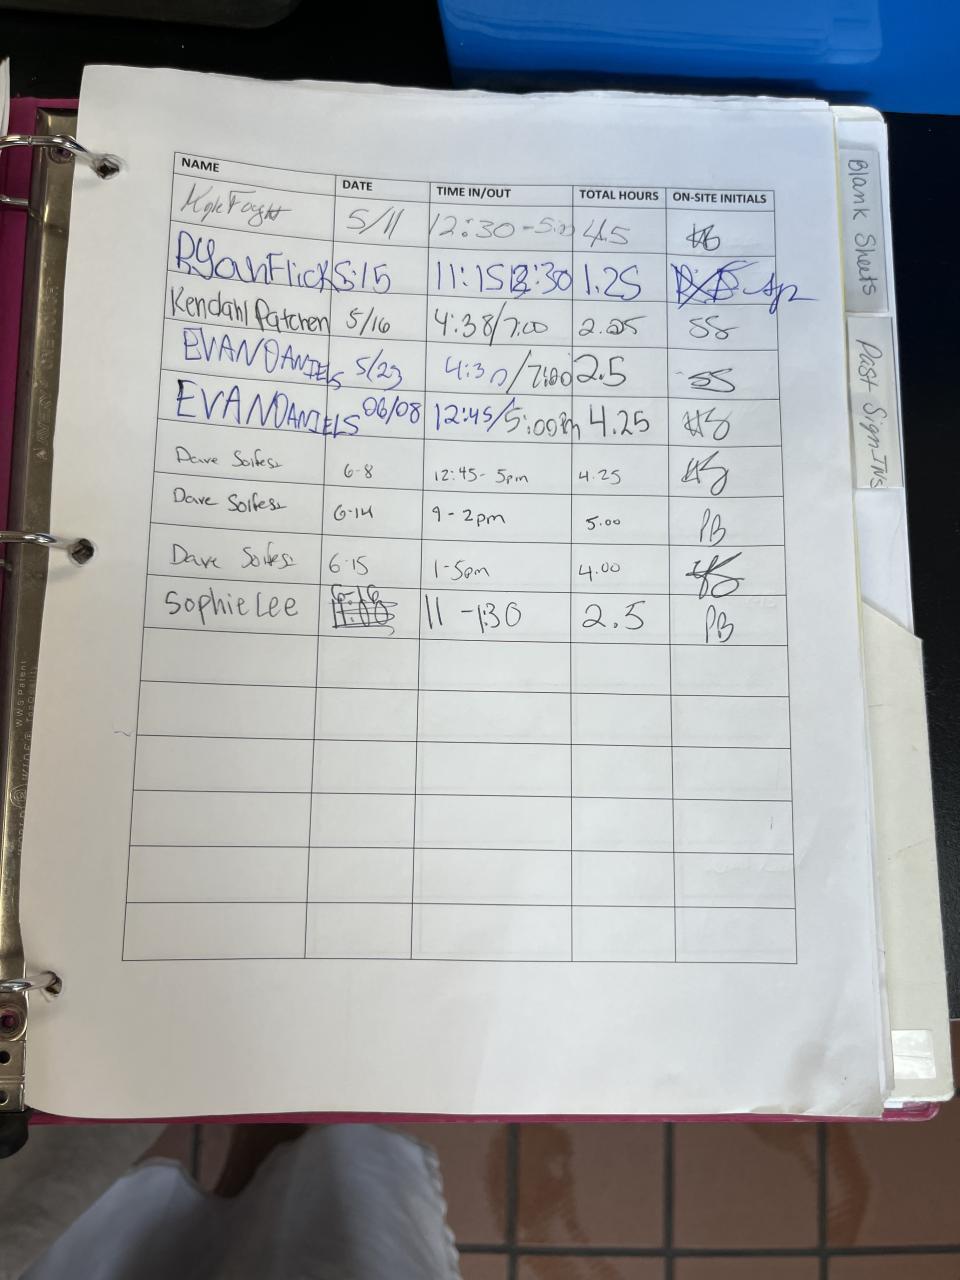 NAME DATE TIME IN/OUT TOTAL HOURS ON-SITE INITIALS
Kyle 5/11 12:30 - 5:00 4.5
Ryan Flick 5:15 11:15 12:30 1.25
Kendahl Patchen 5/16 4:38/7:00 2.25 SS
EVAN DANIELS 5/23 4:30/7:00 2.5 SS
EVAN DANIELS 06/08 12:45/5:00pm 4.25
Dave 6-8 12:45- 5pm 4.25
Dave 6-14 9-2pm 5.00 PB
Dave 6-15 1-5pm 4.00
Sophie Lee 6-16 11 -1:30 2.5 PB
Blank Sheets
Past Sign INs